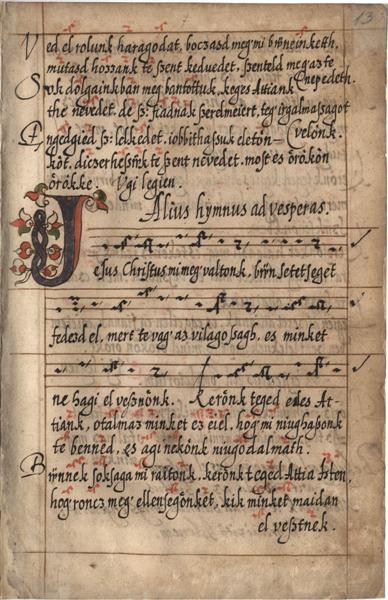 13
Ved el rolunk haragodat, boczasd meg mi bwneinketh,
mutasd hozzank te szent kedvedet, szenteld meg az te
Sok dolgainkban meg bantottuk, keges Attiank Cnepedeth.
the nevedet, de sz: fiadnak szerelmeiert, teg irgalmassagot
Engedgied sz: lelkedet, iobbithassuk eleton- Cvelönk.
köt, diczerhessük te szent nevedet, most es örökön
örökke. Vgi legien.
Alius hymnus ad vesperas.
Jesus Christus mi meg valtonk, bwn setetseget
fedezd el, mert te vag' az vilagossagh, es minket
ne hagi el vesznönk. Kerönk teged edes At-
tiank, otalmaz minket ez eiel, hog' mi niughassonk
te benned, es agi nekönk niugodalmath.
Bwnnek soksaga mi raitonk, kerönk teged Attia Isten,
hog' roncz meg' ellensegönket, kik minket maidan
el vesztnek.